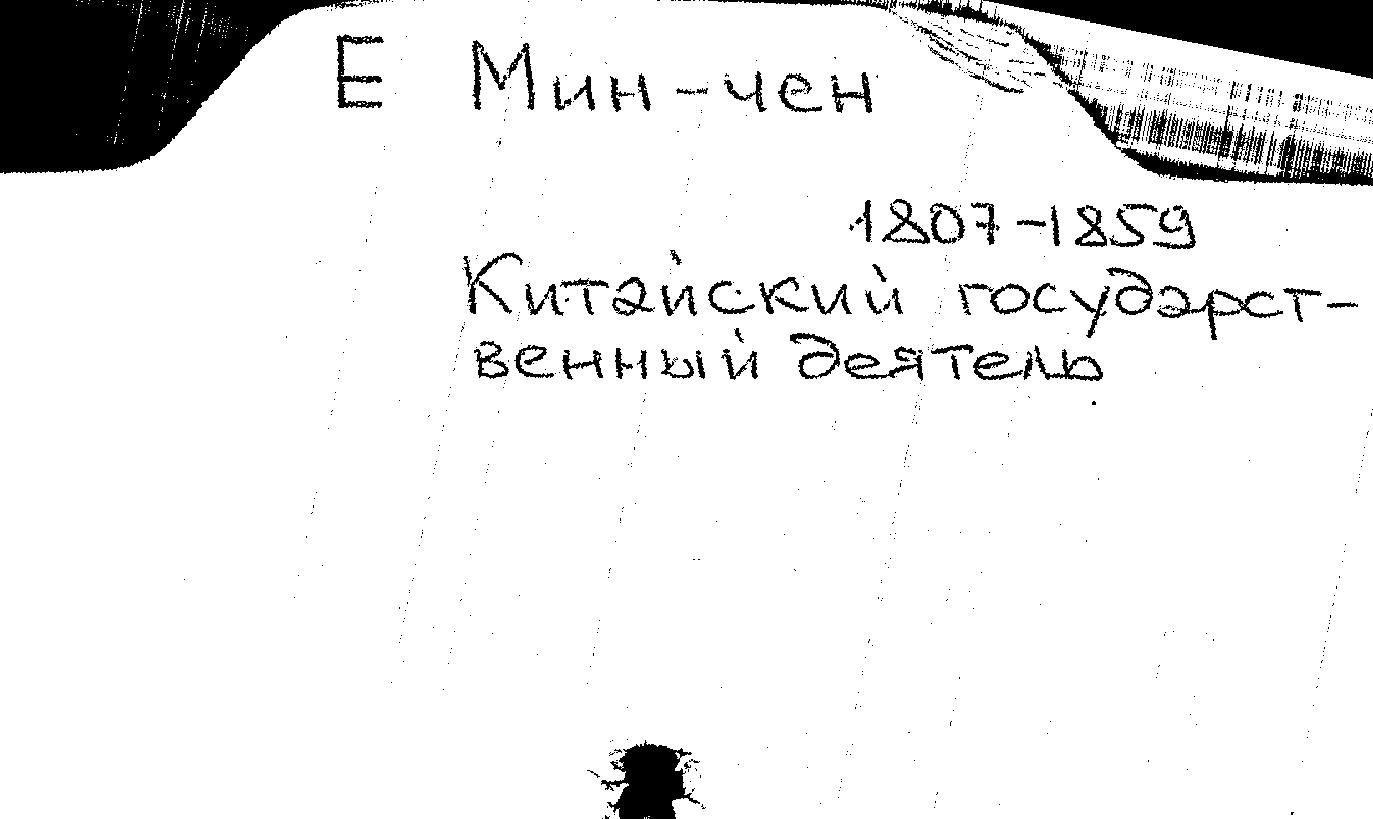 Е Мин-чен
1807-1859
Китайский государст-
венный деятель